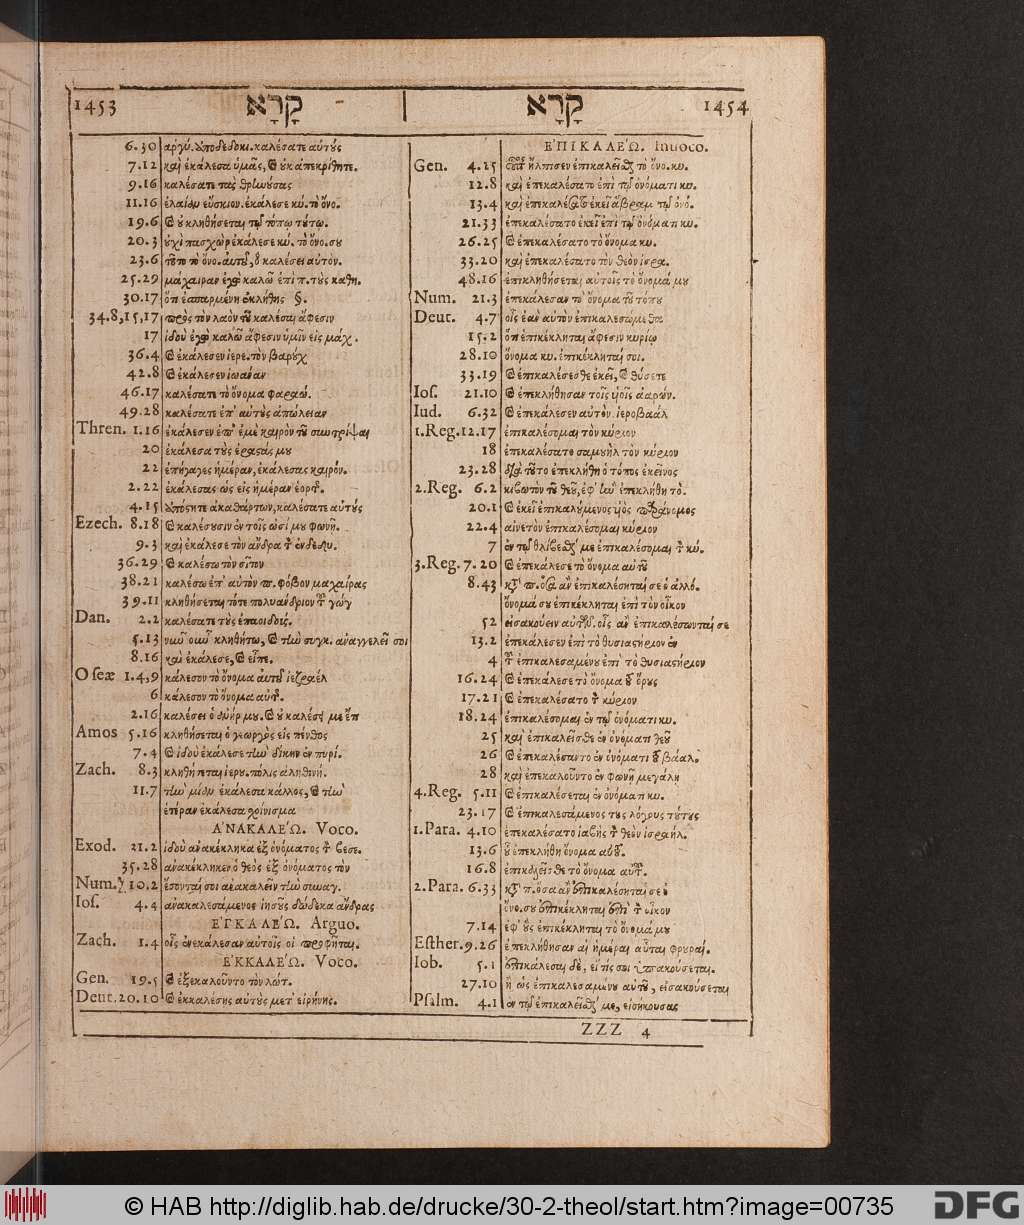 1453 קָרָא קָרָא 1454
6.30 ἀργύ. ἀποδεδοκι. καλέσατε αὐτούς
7.12 καὶ ἐκάλεσα ὑμᾶς, καὶ οὐκ ἀπεκρίθητε.
9.16 καλέσατε τὰς θρηνούσας
11.16 ἐλαίαν εὔσκιον. ἐκάλεσε κύ. τὸ ὄνο.
19.6 καὶ οὐ κληθήσεται τῷ τόπῳ τούτῳ.
20.3 οὐχὶ πασχὼρ ἐκάλεσε κύ. τὸ ὄνο. σου
23.6 τοῦτο τὸ ὄνο. αὐτοῦ, ὃ καλέσει αὐτόν.
25.29 μάχαιραν ἐγὼ καλῶ ἐπὶ π. τοὺς καθη.
30.17 ὅτι ἐσπαρμένη ἐκλήθης §.
34.8,15,17 πρὸς τὸν λαὸν τοῦ καλέσαι ἄφεσιν
17 ἰδοὺ ἐγὼ καλῶ ἄφεσιν ὑμῖν εἰς μάχ.
36.4 καὶ ἐκάλεσεν ἱερε. τὸν βαρούχ
42.8 καὶ ἐκάλεσεν ἰωανὰν
46.17 καλέσατε τὸ ὄνομα φαραώ.
49.28 καλέσατε ἐπ' αὐτοὺς ἀπώλειαν
Thren. 1.16 ἐκάλεσεν ἐπ' ἐμὲ καιρὸν τοῦ συντρίψαι
20 ἐκάλεσα τοὺς ἐραστάς μου
22 ἐπήγαγες ἡμέραν, ἐκάλεσας καιρόν.
2.22 ἐκάλεσας ὡς εἰς ἡμέραν ἑορτ.
4.15 ἀπόστητε ἀκαθάρτων, καλέσατε αὐτούς
Ezech. 8.18 καὶ καλέσουσιν ἐν τοῖς ὠσί μου φωνῇ.
9.3 καὶ ἐκάλεσε τὸν ἄνδρα τὸν ἐνδεδυ.
36.29 καὶ καλέσω τὸν σῖτον
38.21 καλέσω ἐπ' αὐτὸν π. φόβον μαχαίρας
39.11 κληθήσεται τότε πολυάνδριον τοῦ γώγ
Dan. 2.2 καλέσατε τοὺς ἐπαοιδούς.
5.13 νῦν οὖν κληθήτω, καὶ τὴν συγκ. ἀναγγελεῖ σοι
8.16 καὶ ἐκάλεσε, καὶ εἶπε.
Oseæ 1.4,9 κάλεσον τὸ ὄνομα αὐτοῦ ἰεζραέλ
6 κάλεσον τὸ ὄνομα αὐτ.
2.16 καλέσει ὁ ἀνήρ μου. καὶ οὐ καλέσῃ με ἔτι
Amos 5.16 κληθήσεται ὁ γεωργὸς εἰς πένθος
7.4 καὶ ἰδοὺ ἐκάλεσε τὴν δίκην ἐν πυρί.
Zach. 8.3 κληθήσεται ἱερου. πόλις ἀληθινή.
11.7 τὴν μίαν ἐκάλεσα κάλλος, καὶ τὴν
ἑτέραν ἐκάλεσα χοίνισμα
ἈΝΑΚΑΛΈΩ. Voco.
Exod. 31.2 ἰδοὺ ἀνακέκληκα ἐξ ὀνόματος τ βεσε.
35.28 ἀνακέκληκεν ὁ θεὸς ἐξ ὀνόματος τὸν
Num. 10.2 ἔσονταί σοι ἀνακαλεῖν τὴν συναγ.
Ios. 4.4 ἀνακαλεσάμενος ἰησοῦς δώδεκα ἄνδρας
ἘΓΚΑΛΈΩ. Arguo.
Zach. 1.4 οἷς ἐνεκάλεσαν αὐτοῖς οἱ προφῆται.
ἘΚΚΑΛΈΩ. Voco.
Gen. 19.5 καὶ ἐξεκαλοῦντο τὸν λώτ.
Deut. 20.10 καὶ ἐκκαλέσῃς αὐτοὺς μετ' εἰρήνης.
ἘΠΙΚΑΛΈΩ. Inuoco.
Gen. 4.25 οὗτος ἤλπισεν ἐπικαλεῖσθαι τὸ ὄνο. κυ.
12.8 καὶ ἐπεκαλέσατο ἐπὶ τῷ ὀνόματι κυ.
13.4 καὶ ἐπεκαλέσατο ἐκεῖ ἄβραμ τῷ ὀνό.
21.33 ἐπεκαλέσατο ἐκεῖ ἐπὶ τῷ ὀνόματι κυ.
26.25 καὶ ἐπεκαλέσατο τὸ ὄνομα κυ.
33.20 καὶ ἐπεκαλέσατο τὸν θεὸν ἰσρα.
48.16 ἐπικληθήσεται αὐτοῖς τὸ ὄνομά μου
Num. 21.3 ἐπεκάλεσαν τὸ ὄνομα τοῦ τόπου
Deut. 4.7 οἷς ἐὰν αὐτὸν ἐπικαλεσώμεθα
15.2 ὅτι ἐπικέκληται ἄφεσιν κυρίῳ
28.10 ὄνομα κυ. ἐπικέκληταί σοι.
33.19 καὶ ἐπικαλέσεσθε ἐκεῖ, καὶ θύσετε
Ios. 21.10 καὶ ἐπεκλήθησαν τοῖς υἱοῖς ἀαρών.
Iud. 6.32 καὶ ἐπεκάλεσεν αὐτὸν. ἱεροβαάλ
1.Reg. 12.17 ἐπικαλέσομαι τὸν κύριον
18 ἐπεκαλέσατο σαμουὴλ τὸν κύριον
23.28 διὰ τοῦτο ἐπεκλήθη ὁ τόπος ἐκεῖνος
2.Reg. 6.2 κιβωτὸν τοῦ θεοῦ, ἐφ' ἣν ἐπεκλήθη τὸ.
20.1 καὶ ἐκεῖ ἐπικαλούμενος υἱὸς παράνομος
22.4 αἰνετὸν ἐπικαλέσομαι κύριον
7 ἐν τῷ θλίβεσθαί με ἐπικαλέσομαι τ κύ.
3.Reg. 7.20 καὶ ἐπεκάλεσε τὸ ὄνομα αὐτοῦ
8.43 κτ π. ὅσα ἂν ἐπικαλέσηταί σε ὁ ἀλλό.
ὄνομά σου ἐπικέκληται ἐπὶ τὸν οἶκον
52 εἰσακούειν αὐτῶν. οἷς ἂν ἐπικαλέσωνταί σε
13.2 ἐπεκάλεσεν ἐπὶ τὸ θυσιαστήριον ἐν
4 τ ἐπικαλεσαμένου ἐπὶ τὸ θυσιαστήριον
16.24 καὶ ἐπεκάλεσε τὸ ὄνομα τοῦ ὄρους
17.21 καὶ ἐπεκαλέσατο τ κύριον
18.24 ἐπικαλέσομαι ἐν τῷ ὀνόματι κυ.
25 καὶ ἐπικαλεῖσθε ἐν ὀνόματι θεοῦ
26 καὶ ἐπεκαλέσαντο ἐν ὀνόματι τοῦ βάαλ.
28 καὶ ἐπεκαλοῦντο ἐν φωνῇ μεγάλῃ
4.Reg. 5.11 καὶ ἐπικαλέσεται ἐν ὀνόματι κυ.
23.17 καὶ ἐπικαλεσάμενος τοὺς λόγους τούτους
1.Para. 4.10 ἐπεκαλέσατο ἰαβὴς τ θεὸν ἰσραήλ.
13.6 οὗ ἐπεκλήθη ὄνομα αὐτοῦ.
16.8 ἐπικαλεῖσθε τὸ ὄνομα αὐτ.
2.Para. 6.33 κτ π. ὅσα ἂν ἐπικαλέσηταί σε ὁ
ὄνο. σου ἐπικέκληται ἐπὶ τ οἶκον
7.14 ἐφ' οὓς ἐπικέκληται τὸ ὄνομά μου
Esther. 9.26 ἐπεκλήθησαν αἱ ἡμέραι αὗται φρουραί.
Iob. 5.1 ἐπικάλεσαι δὲ, εἴ τίς σοι ὑπακούσεται.
27.10 ἢ ὡς ἐπικαλεσαμένου αὐτοῦ, εἰσακούσεται
Psalm. 4.1 ἐν τῷ ἐπικαλεῖσθαί με, εἰσήκουσας
ZZZ 4
© HAB http://diglib.hab.de/drucke/30-2-theol/start.htm?image=00735
DFG